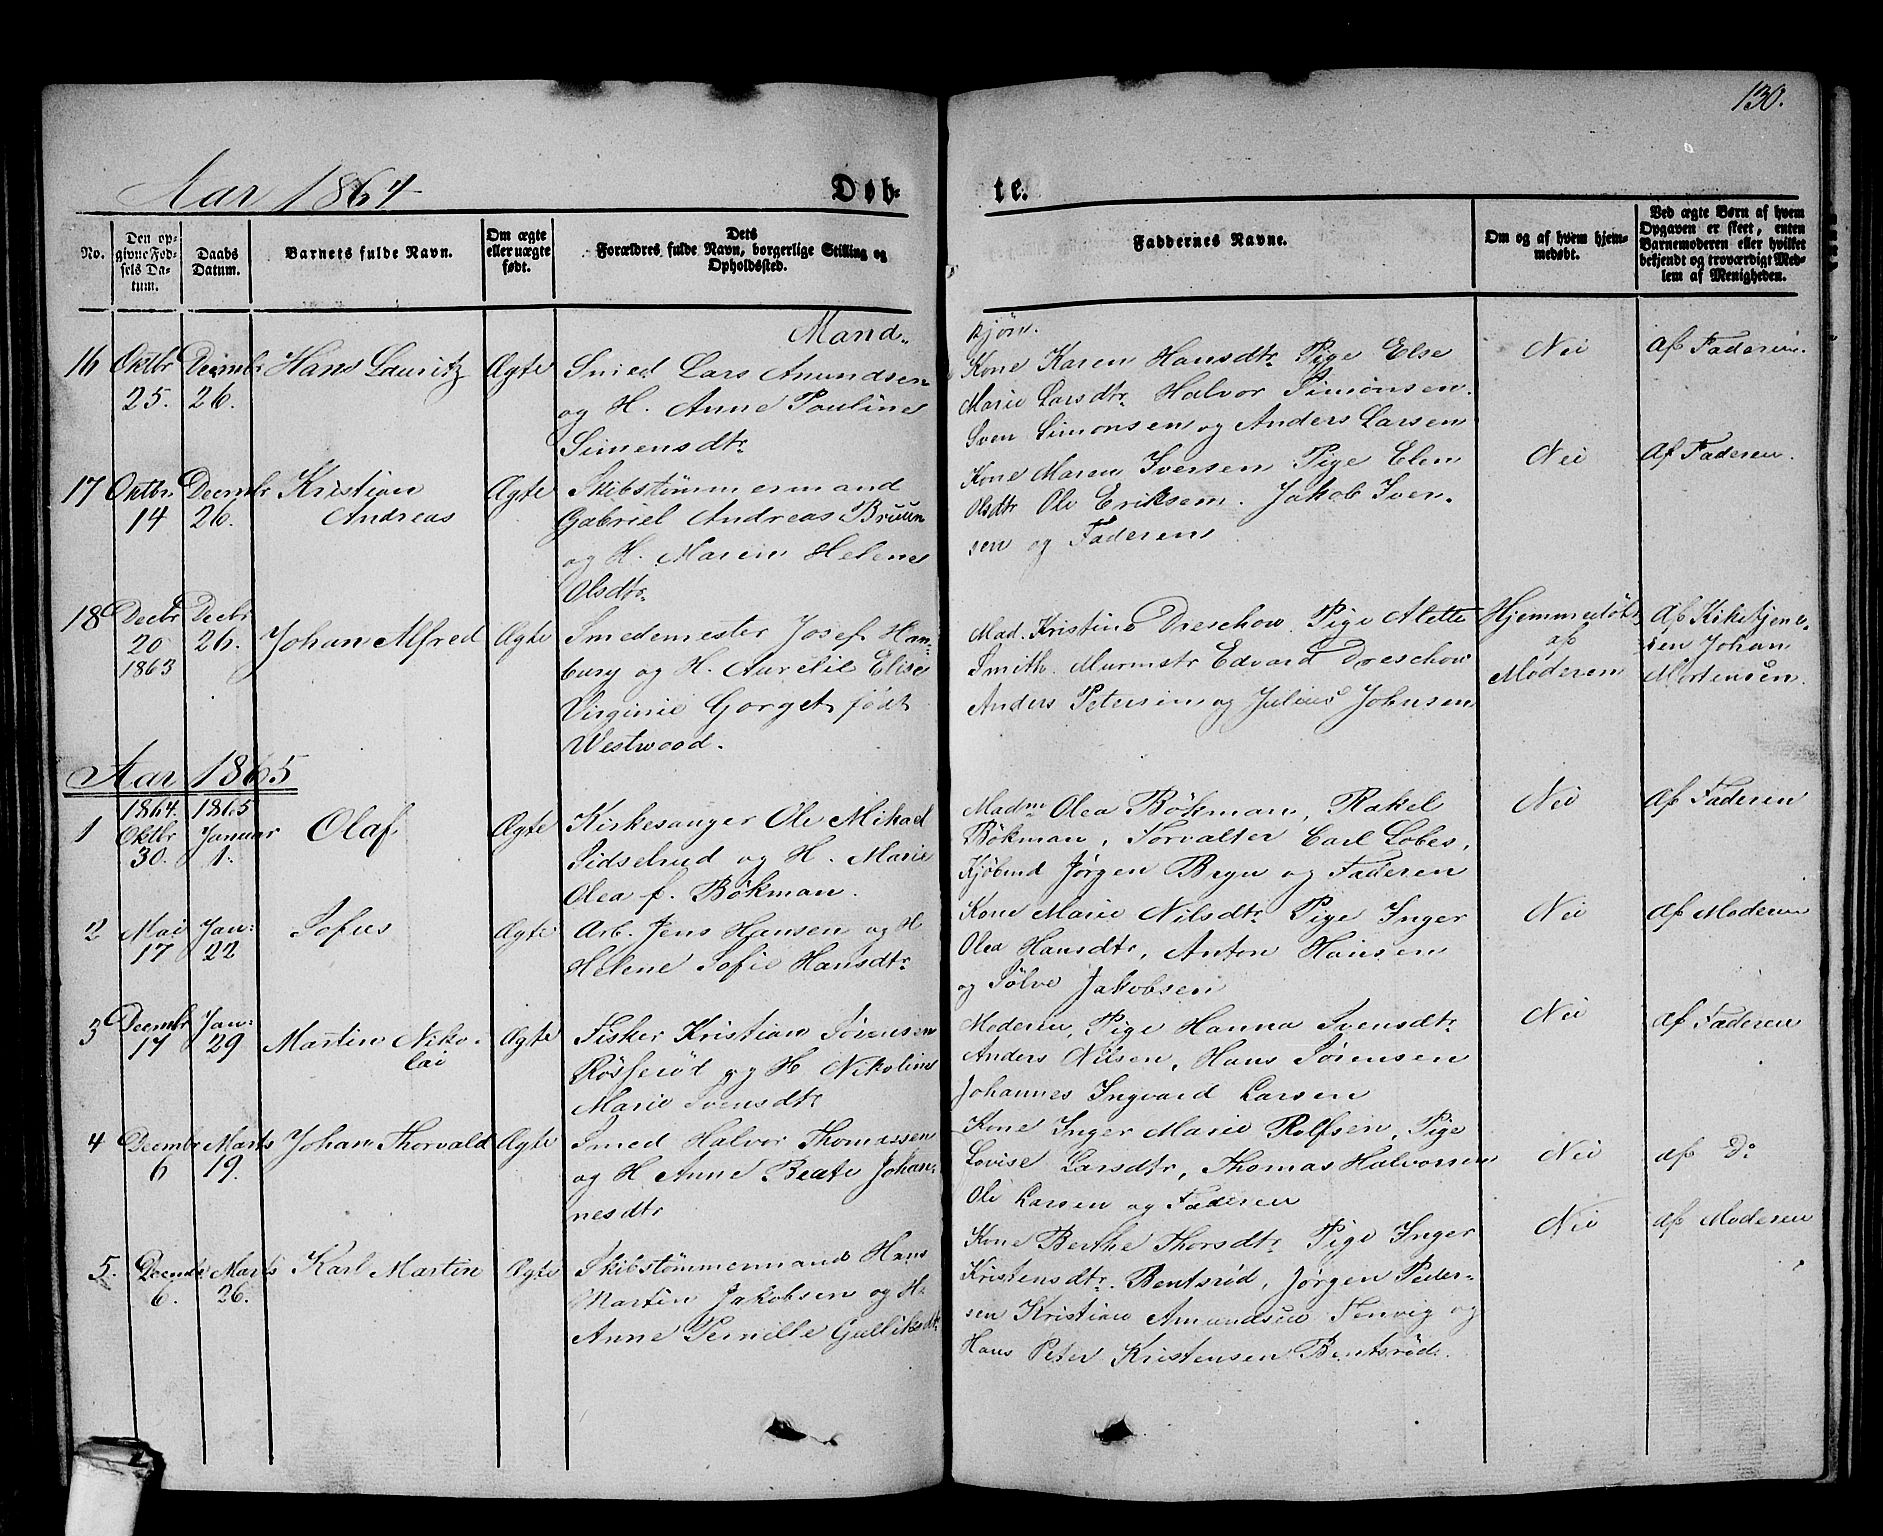 130.
Aar 1864
Døb-
te.
No.
Den op-
givne Fød-
sels Da-
tum.
Daabs
Datum.
Barnets fulde Navn.
Om ægte
eller uægte
født.
Dets
Forældres fulde Navn, borgerlige Stilling og
Opholdssted.
Faddernes Navne.
Om og af hvem hjem-
medøbt.
Ved ægte Børn af hvem
Opgaven er skeet, enten
Barnemoderen eller hvilket
bekjendt og troværdigt Med-
lem af Menigheden.
Mand-
kjøn.
16 Oktbr
25.
Decmbr
26.
Hans Lauritz
Ægte
Smed Lars Amundsen
og H. Anne Pauline
Simensdtr.
Kone Karen Hansdtr. Pige Else
Marie Larsdtr. Halvor Simonsen.
Sven Simonsen og Anders Larsen
Nei
Af Faderen.
17 Oktbr.
14
Decembr
26.
Kristian
Andreas
Ægte
Skibstømmermand
Gabriel Andreas Bruun
og H. Maren Helene
Olsdtr.
Kone Maren Iversen Pige Elen
Olsdtr Ole Eriksen. Jakob Iver-
sen og Faderen
Nei
Af Faderen.
18 Decbr
20
1863
Decbr
26.
Johan Alfred
Ægte
Smedemester Josef Ham-
bury og H. Aurelie Elise
Virginie Gorget født
Westwood.
Mad. Kristine Dreschow. Pige Mette
Smith. Murmstr Edvard Dreschow
Anders Petersen og Julius Johnsen
Hjemmedøbt
af
Moderen
Af Kirketjene-
ren Johan
Mortensen.
Aar 1865
1 1864.
Oktbr
30.
1865
Januar
1.
Olaf
Ægte
Kirkesanger Ole Mikael
Sidselrud og H. Marie
Olea f. Bökman.
Madm Olea Bökman, Rakel
Bökman, Forvalter Carl Lobes,
Kjöbmd Jørgen Bryn og Faderen
Nei
Af Faderen
2 Mai
17
Jan:
22
Sofus
Ægte
Arb. Jens Hansen og H
Helene Sofie Hansdtr.
Kone Marie Nilsdtr. Pige Inger
Olea Hansdtr, Anton Hansen
og Sölve Jakobsen
Nei
Af Moderen
3 Decmbr
17
Jan:
29
Martin Niko-
lai
Ægte
Fisker Kristian Sörensen
og H Nikoline
Marie Svensdtr
Moderen, Pige Hanna Svensdtr.
Anders Nilsen, Hans Sørensen
Johannes Ingvard Larsen
Nei
Af Faderen
4 Decembr
6
Marts
19.
Johan Thorvald
Ægte
Smed Halvor Thomassen
og H Anne Beate Johan-
nesdtr
Kone Inger Marie Rolfsen, Pige
Lovise Larsdtr, Thomas Halvorsen
Ole Larsen og Faderen
Nei
af Do
5.
6.
Marts
26.
Karl Martin
Ægte
Skibstømmermand Hans
Martin Jakobsen og H.
Anne Pernille Gulliksdtr.
Kone Berthe Thorsdtr. Pige Inger
Kristensdtr. Bentsröd, Jørgen Peder-
sen Kristian Amundsen Tenvig og
Hans Peter Kristensen Bentsröd.
Nei
Af Moderen